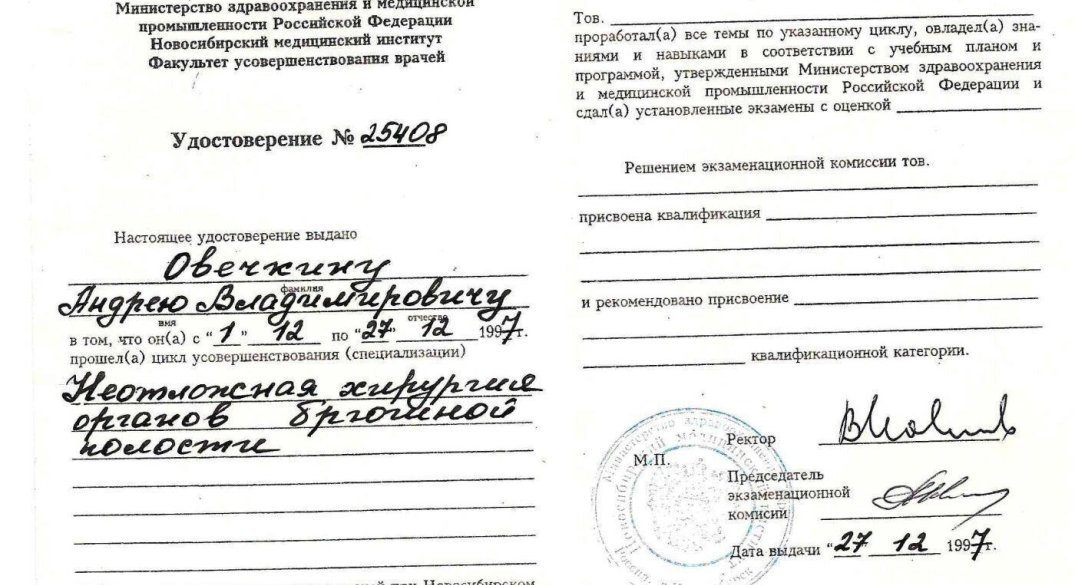 Министерство здравоохранения и медицинской
промышленности Российской Федерации
Новосибирский медицинский институт
Факультет усовершенствования врачей
Удостоверение № 25408
Настоящее удостоверение выдано
Овечкину
фамилия
Андрею Владимировичу
имя отчество
в том, что он(а) с "1" 12 по "27" 12 1997г.
прошел(а) цикл усовершенствования (специализации)
Неотложная хирургия
органов брюшной
полости
при Новосибирском
Тов.
проработал(а) все темы по указанному циклу, овладел(а) зна-
ниями и навыками в соответствии с учебным планом и
программой, утвержденными Министерством здравоохранения
и медицинской промышленности Российской Федерации и
сдал(а) установленные экзамены с оценкой
Решением экзаменационной комиссии тов.
присвоена квалификация
и рекомендовано присвоение
квалификационной категории.
Ректор
М.П.
Председатель
экзаменационной
комисии
Дата выдачи "27" 12 1997г.
Министерство здравоохранения
Новосибирский медицинский институт